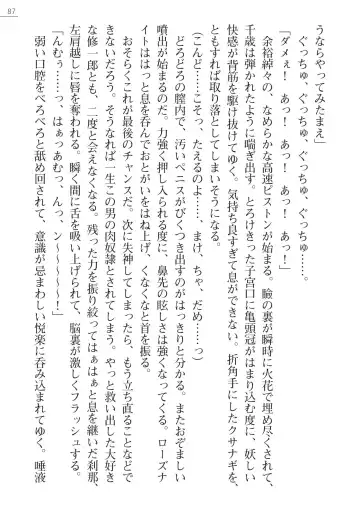 87
うならやってみたまえ」
ぐっちゅ、ぐっちゅ、ぐっちゅ、ぐっちゅ……。
「ダメぇ！　あっ！　あっ！　あっ！　あっ！」
余裕綽々の、なめらかな高速ピストンが始まる。瞼の裏が瞬時に火花で埋め尽くされて、
千歳は弾かれたように喘ぎ出す。とろけきった子宮口に亀頭冠がハマるたびに、妖しい
快感が背筋を駆け抜けてゆく。気持ち良すぎて息ができない。折角手にしたクサナギを、
ともすれば取り落としてしまいそうになる。
（こんど……こそっ、たえるのよ……まけ、ちゃ、だめ……っ）
どろどろの膣内で、汚いペニスがびくつき出すのがはっきりと分かる。またおぞましい
噴出が始まるのだ。力強く押し入られる度に、鼻先の眩しさは強くなってゆく。ローズナ
イトははっと息を呑んでおとがいをはね上げ、くなくなと首を振る。
おそらくこれが最後のチャンスだ。次に失神してしまったら、もう立ち直ることなどで
きないだろう。そうなれば一生この男の肉奴隷とされてしまう。やっと救い出した大好き
な修一郎とも、二度と会えなくなる。残った力を振り絞ってはぁはぁと息を継いだ刹那、
左肩越しに唇を奪われる。瞬く間に舌を吸い上げられて、脳裏が激しくフラッシュする。
「んむぅ……っ、はぁっあむっ、んっ、ン〜〜〜〜〜！」
弱い口腔をべろべろと舐め回されて、意識が忌まわしい悦楽に呑み込まれてゆく。唾液